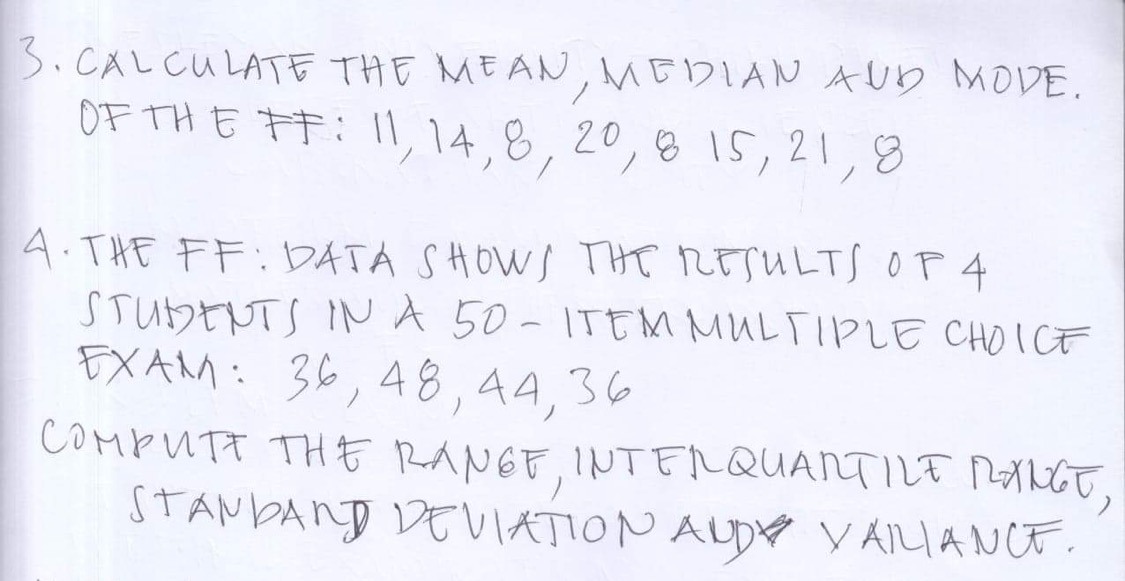 3. CALCULATE THE MEAN, MEDIAN AND MODE.
OF THE FF: 11, 14, 8, 20, 8 15, 21, 8
4. THE FF: DATA SHOWS THE RESULTS OF 4
STUDENTS IN A 50 - ITEM MULTIPLE CHOICE
EXAM: 36, 48, 44, 36
COMPUTE THE RANGE, INTERQUARTILE RANGE,
STANDARD DEVIATION AND VARIANCE.